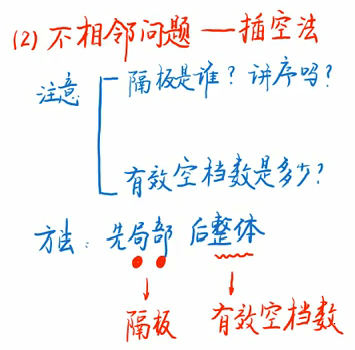 (2) 不相邻问题 — 插空法
注意
隔板是谁? 讲序吗?
有效空档数是多少?
方法: 先局部 后整体
隔板 有效空档数